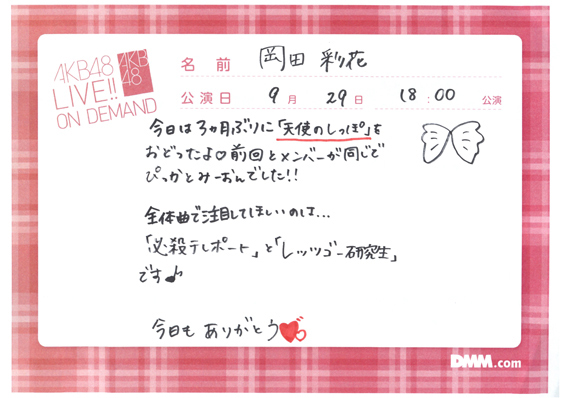 AKB48
LIVE!!
ON DEMAND
AKB
48
名前 岡田彩花
公演日 9月29日 18:00 公演
今日は3ヵ月ぶりに「天使のしっぽ」を
おどったよ♡前回とメンバーが同じで
ぴっかとみーおんでした!!
全体曲で注目してほしいのは...
「必殺テレポート」と「レッツゴー研究生」
です♪
今日もありがとう
DMM.com